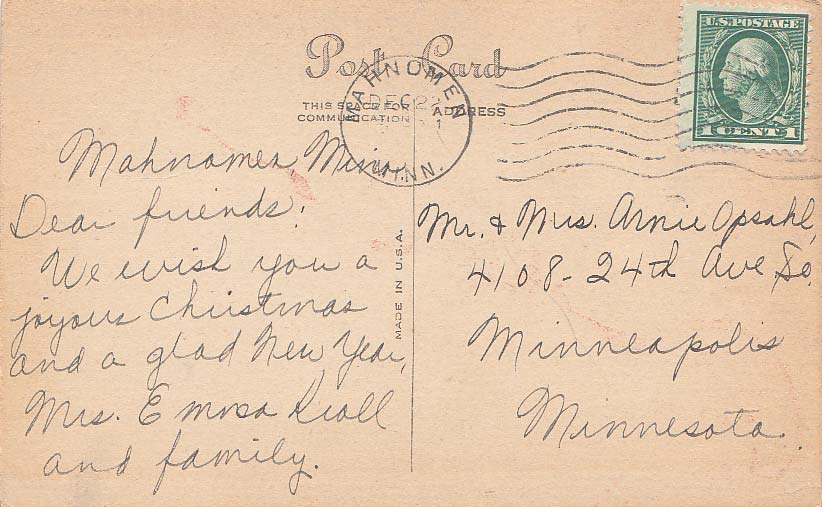 Post Card
THIS SPACE FOR
COMMUNICATION
ADDRESS
MAHNOMEN
DEC 22
MINN.
U.S. POSTAGE
1 CENT 1
Mahnomen, Minn.
Dear friends:
We wish you a
joyous Christmas
and a glad New Year,
Mrs. Emma
and family.
MADE IN U.S.A.
Mr. & Mrs. Arnie Opsahl,
4108-24th Ave So.
Minneapolis
Minnesota.